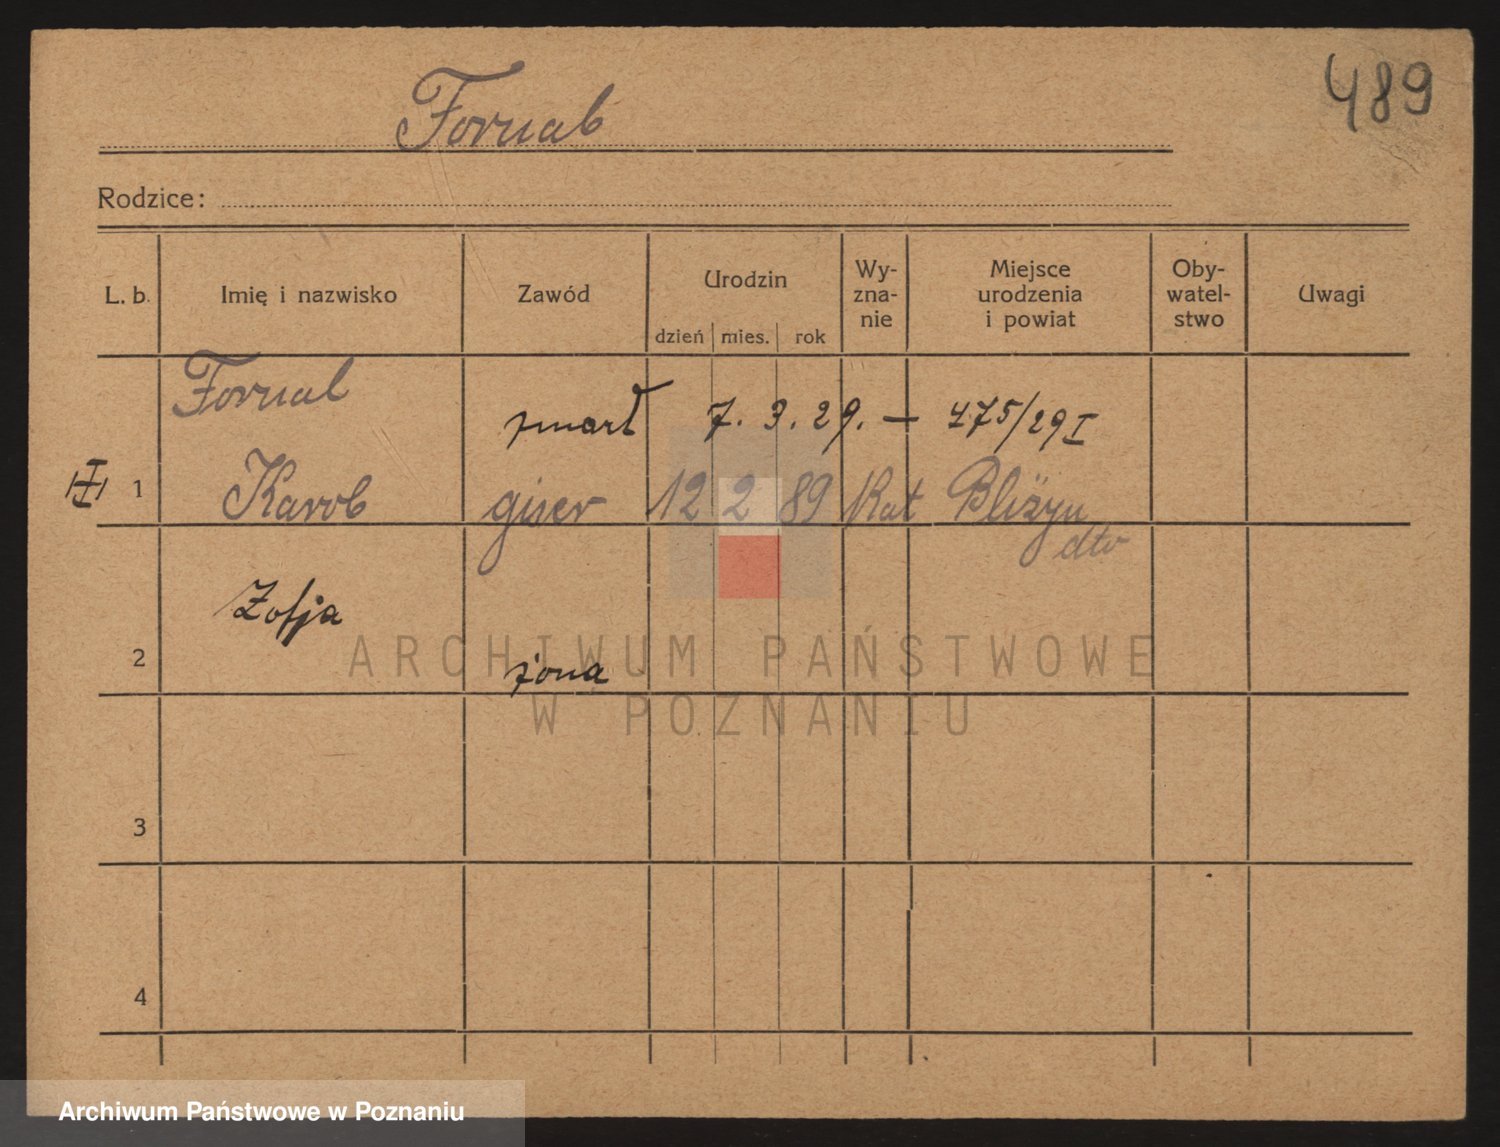 489
Fornal
Rodzice:
L. b. Imię i nazwisko Zawód Urodzin dzień mies. rok Wy-zna-nie Miejsce urodzenia i powiat Oby-watel-stwo Uwagi
Fornal
zmarł 7. 3. 29. — 475/29 I
1 Karol giser 12 2 89 Kat Bliżyn
dto
Zofja
2 żona
3
4
ARCHIWUM PAŃSTWOWE
W POZNANIU
Archiwum Państwowe w Poznaniu